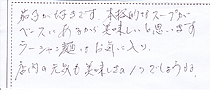 茄子が好きです。本格的なスープが
ベースにあるから美味しいと思います
ラーシャン麺もお気に入り。
店内の元気も美味しさの1つでしょうね。